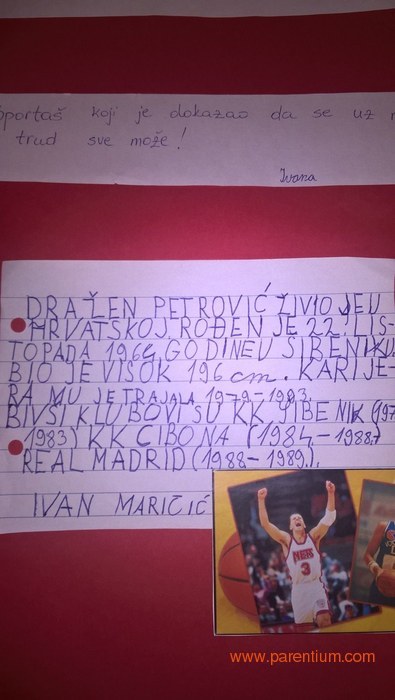 športaš koji je dokazao da se uz
trud sve može!
Ivana
DRAŽEN PETROVIĆ ŽIVIO JE U
HRVATSKOJ. ROĐEN JE 22. LIS-
TOPADA 1964. GODINE U ŠIBENIKU.
BIO JE VISOK 196 cm. KARIJE-
RA MU JE TRAJALA 1979-1993.
BIVŠI KLUBOVI SU KK ŠIBENIK (197
-1983) KK CIBONA (1984.-1988.)
REAL MADRID (1988-1989.).
IVAN MARIČIĆ
NETS
3
www.parentium.com